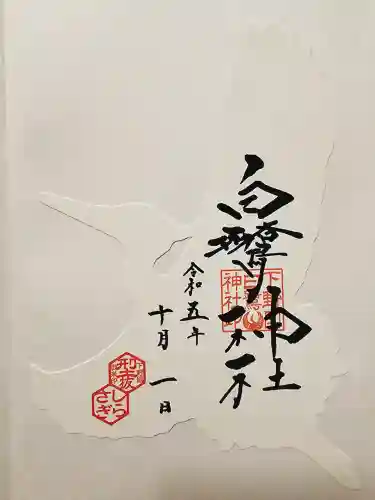 白鷺神社
下野国
白鷺
神社
令和五年
十月一日
しら
さぎ